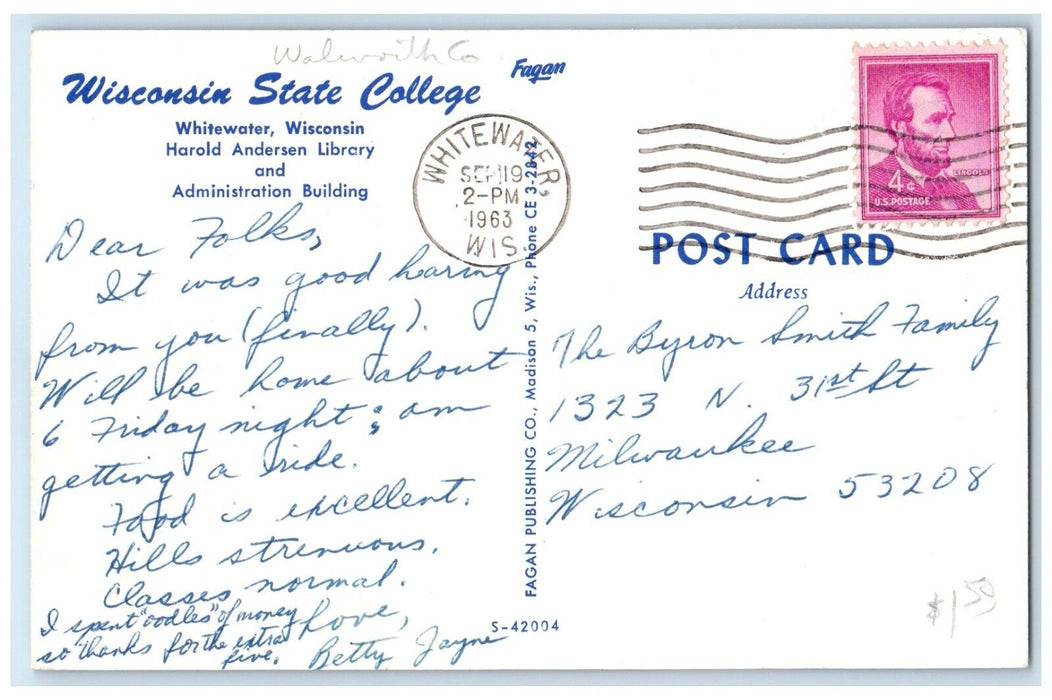 Walworth Co
Wisconsin State College
Fagan
Whitewater, Wisconsin
Harold Andersen Library
and
Administration Building
WHITEWATER,
SEP 19
2-PM
1963
WIS.
LINCOLN
4¢
U.S. POSTAGE
Dear Folks,
It was good hearing
from you (finally).
Will be home about
6 Friday night; am
getting a ride.
Food is excellent.
Hills strenuous.
Classes normal.
Love,
Betty Jayne
I spent "oodles" of money
so thanks for the extra
five.
FAGAN PUBLISHING CO., Madison 5, Wis., Phone CE 3-2842
S-42004
POST CARD
Address
The Byron Smith Family
1323 N. 31st St
Milwaukee
Wisconsin 53208
$1.50